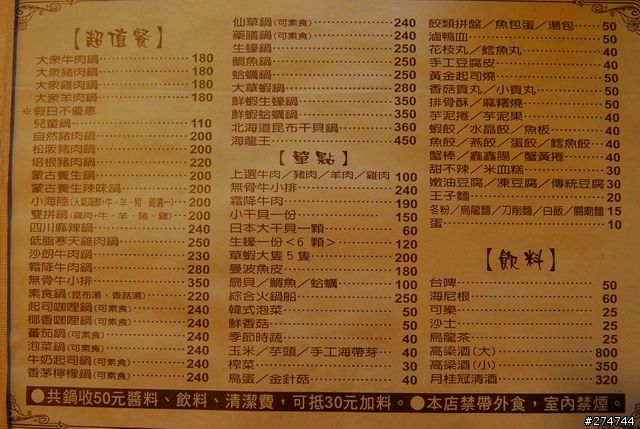 【超值餐】
大眾牛肉鍋 180
大眾豬肉鍋 180
大眾雞肉鍋 180
大眾羊肉鍋 180
※假日不優惠
兒童鍋 110
自然豬肉鍋 200
松阪豬肉鍋 200
培根豬肉鍋 220
蒙古養生鍋 200
蒙古養生辣味鍋 200
小海陸(人氣海鮮+牛、羊、豬、雞選一) 200
雙拼鍋(雞肉、牛、羊、豬、雞) 200
四川麻辣鍋 240
低脂寒天雞肉鍋 250
沙朗牛肉鍋 230
霜降牛肉鍋 280
無骨牛小排 350
素食鍋(昆布湯、香菇湯) 220
起司咖哩鍋(可素食) 240
椰香咖哩鍋(可素食) 240
蕃茄鍋(可素食) 240
泡菜鍋(可素食) 240
牛奶起司鍋(可素食) 240
香茅檸檬鍋(可素食) 240
仙草鍋(可素食) 240
藥膳鍋(可素食) 240
生蠔鍋 250
鯛魚鍋 250
蛤蠣鍋 250
大草蝦鍋 280
鮮蝦生蠔鍋 350
鮮蝦蛤蠣鍋 350
北海道昆布干貝鍋 360
海龍王 450
【單點】
上選牛肉／豬肉／羊肉／雞肉 100
無骨牛小排 240
霜降牛肉 190
小干貝一份 150
日本大干貝一顆 60
生蠔一份<6 顆> 120
草蝦大隻5隻 200
曼波魚皮 180
扇貝／鯛魚／蛤蠣 100
綜合火鍋船 250
韓式泡菜 50
鮮香菇 50
季節時蔬 40
玉米／芋頭／手工海帶芽 40
榨菜 30
鳥蛋／金針菇 40
餃類拼盤／魚包蛋／湯包 50
滷鴨血 50
花枝丸／鱈魚丸 40
手工豆腐皮 40
黃金起司燒 50
香菇貢丸／小貢丸 50
排骨酥／麻糬燒 50
芋泥捲／芋泥果 40
蝦餃／水晶餃／魚板 40
魚餃／燕餃／蛋餃／鱈魚餃 40
蟹棒／鑫鑫腸／蟹黃捲 40
甜不辣／米血糕 30
嫩油豆腐／凍豆腐／傳統豆腐 30
王子麵 20
冬粉／烏龍麵／刀削麵／白飯／關廟麵 15
蛋 10
【飲料】
台啤 50
海尼根 60
可樂 25
沙士 25
烏龍茶 25
高梁酒(大) 800
高梁酒(小) 350
月桂冠清酒 320
●共鍋收50元醬料、飲料、清潔費，可抵30元加料。●本店禁帶外食，室內禁煙。
#274744